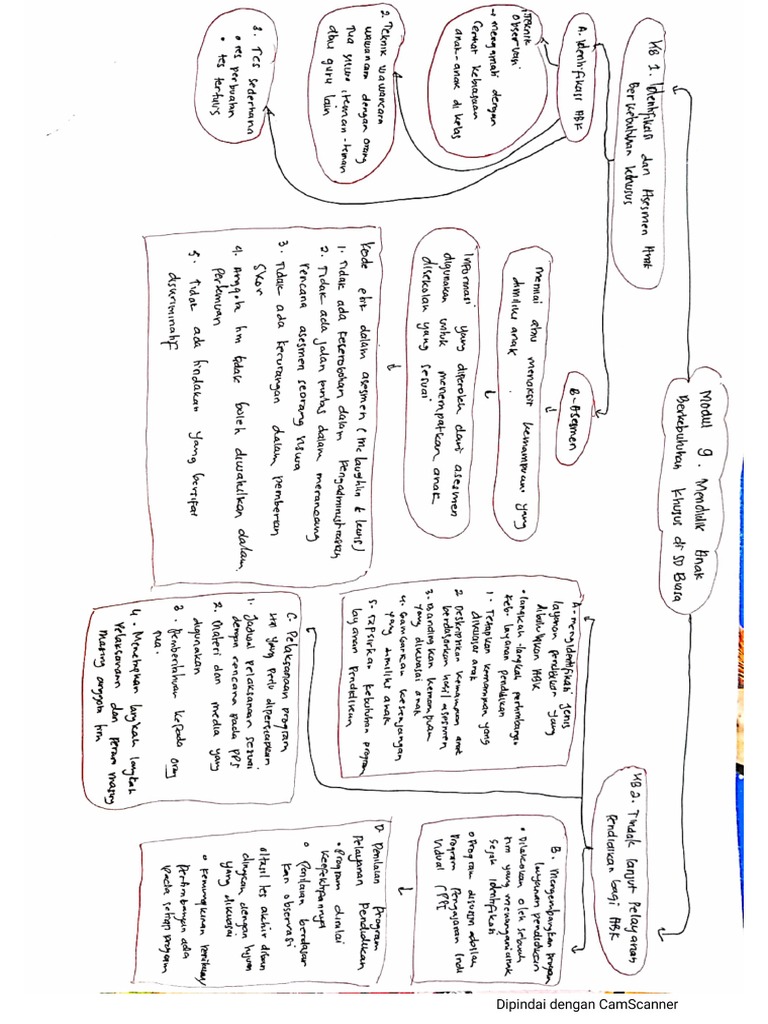 Modul 9. Mendidik Anak
Berkebutuhan Khusus di SD Biasa
KB 1. Identifikasi dan Asesmen Anak
Berkebutuhan Khusus
A. Identifikasi ABK
1. Teknik
Observasi
→ mengamati dengan
Cermat kebiasaan
anak-anak di kelas
2. Teknik wawancara
wawancara dengan orang
tua siswa, teman-teman
atau guru lain
3. Tes sederhana
• tes perbuatan
• tes tertulis
B. Asesmen
menilai atau menaksir kemampuan yang
dimiliki anak.
Informasi yang diperoleh dari asesmen
digunakan untuk menempatkan anak
disekolah yang sesuai
Kode etik dalam asesmen (Mc Laughlin & Lewis)
1. Tidak ada keserobohan dalam Pengadministrasian
2. Tidak ada jalan pintas dalam merancang
rencana asesmen seorang siswa
3. Tidak ada kecurangan dalam pemberian
Skor
4. Anggota tim tidak boleh diwakilkan dalam
Pertemuan
5. Tidak ada tindakan yang bersifat
diskriminatif
KB 2. Tindak lanjut Pelayanan
Pendidikan bagi ABK
A. mengidentifikasi Jenis
layanan pendidikan yang
dibutuhkan ABK
• langkah-langkah pertimbangan
keb. layanan pendidikan
1. Tetapkan kemampuan yang
dikuasai anak
2. Deskripsikan kemampuan anak
berdasarkan hasil asesmen
3. Bandingkan kemampuan
yang dikuasai anak
4. Gambarkan kesenjangan
yang dimiliki anak
5. Tafsirkan kebutuhan program
layanan Pendidikan
B. Mengembangkan program
layanan pendidikan
• Dilakukan oleh sebuah
tim yang menangani anak
sejak identifikasi
• Program disusun adalah
Program Pengajaran Indi
vidual (PPI)
C. Pelaksanaan program
yang perlu dipersiapkan
1. Jadual pelaksanaan sesuai
dengan rencana pada PPI
2. Materi dan media yang
digunakan
3. Pemberitahuan kepada orang
tua.
4. Menetapkan langkah langkah
Pelaksanaan dan peran masing
masing anggota tim
D. Penilaian Program
Pelayanan Pendidikan
• Program dinilai
keefektifannya
• Penilaian berdasar
kan observasi
• Hasil tes akhir diban
dingkan dengan tujuan
yang dikuasai
• Kemungkinan
pertimbangan ada
pada setiap program
Dipindai dengan CamScanner